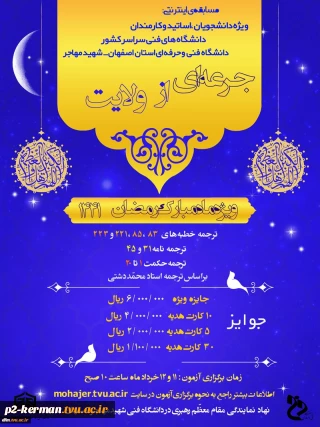 مسابقه‌ی اینترنتی:
ویژه دانشجویان، اساتید و کارمندان
دانشگاه های فنی سراسر کشور
دانشگاه فنی و حرفه‌ای استان اصفهان - شهید مهاجر
جرعه‌ای از ولایت
ویژه ماه مبارک رمضان ۱۴۴۱
ترجمه خطبه‌های ۸۳، ۸۵، ۲۲۱ و ۲۲۳
ترجمه نامه ۳۱ و ۴۵
ترجمه حکمت ۱ تا ۲۰
براساس ترجمه استاد محمد دشتی
جوایز
جایزه ویژه ۶/۰۰۰/۰۰۰ ریال
۱۰ کارت هدیه ۴/۰۰۰/۰۰۰ ریال
۵ کارت هدیه ۲/۰۰۰/۰۰۰ ریال
۳۰ کارت هدیه ۱/۱۰۰/۰۰۰ ریال
زمان برگزاری آزمون: ۱۱ و ۱۲ خرداد ماه ساعت ۱۰ صبح
اطلاعات بیشتر راجع به نحوه برگزاری آزمون در سایت mohajer.tvu.ac.ir
نهاد نمایندگی مقام معظم رهبری در دانشگاه فنی
p2-kerman.tvu.ac.ir